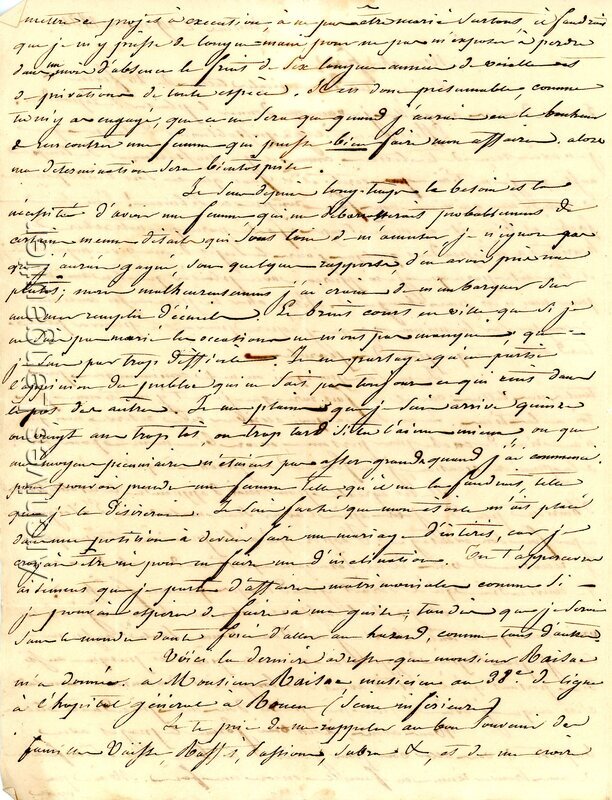 mettre ce projet à execution, à ne pas être marié surtout, il faudra
que je m'y prisse de longue main pour ne pas m'exposer à perdre
dans un mois d'absence le fruit de six longues années de veilles et
de privations de toute espèce. Il est donc présumable, comme
tu m'y as engagé, que ce ne sera que quand j'aurai eu le bonheur
de rencontrer une femme qui puisse bien faire mon affaire. alors
ma determination sera bientôt prise.
Je sens depuis long-temps le besoin et la
nécéssité d'avoir une femme qui me débarasserait probablement de
certains menus détails qui sont loin de m'amuser, je n'ignore pas
que j'aurais gagné, sous quelques rapports, d'en avoir pris une
plutôt; mais malheureusement j'ai craint de m'embarquer sur
une mer remplie d'écueils. Le bruit court en ville que si je
ne suis pas marié les occasions ne m'ont pas manqué; que
je suis par trop difficile. Je ne partage qu'en partie
l'opinion du public qui ne sait pas toujours ce qui cuit dans
le pot des autres. Je me plains que je suis arrivé quinze
ou vingt ans trop tôt, ou trop tard si tu l'aimes mieux ou que
mes moyens pécuniaires n'étaient pas assez grands quand j'ai commencé
pour pouvoir prendre une femme telle qu'il me la faudrait, telle
que je la désirerais. Je suis faché que mon étoile m'ait placé
dans une position à devoir faire un mariage d'intérêt, car je
croyais être né pour en faire un d'inclination. Tu t'appercevras
aisément que je parle d'affaires matrimoniales comme si
je pouvais espérer de faire à ma guise; tandis que je serai
sans le moindre doute forcé d'aller au hazard, comme tant d'autres.
Voici la dernière adresse que monsieur Raisac
m'a donnée. à Monsieur Raisac musicien au 38e. de ligne
à l'hopital général à Rouen (Seine inférieure)
Je te prie de me rappeler au bon souvenir des
familles Vaisse,
et de me croire